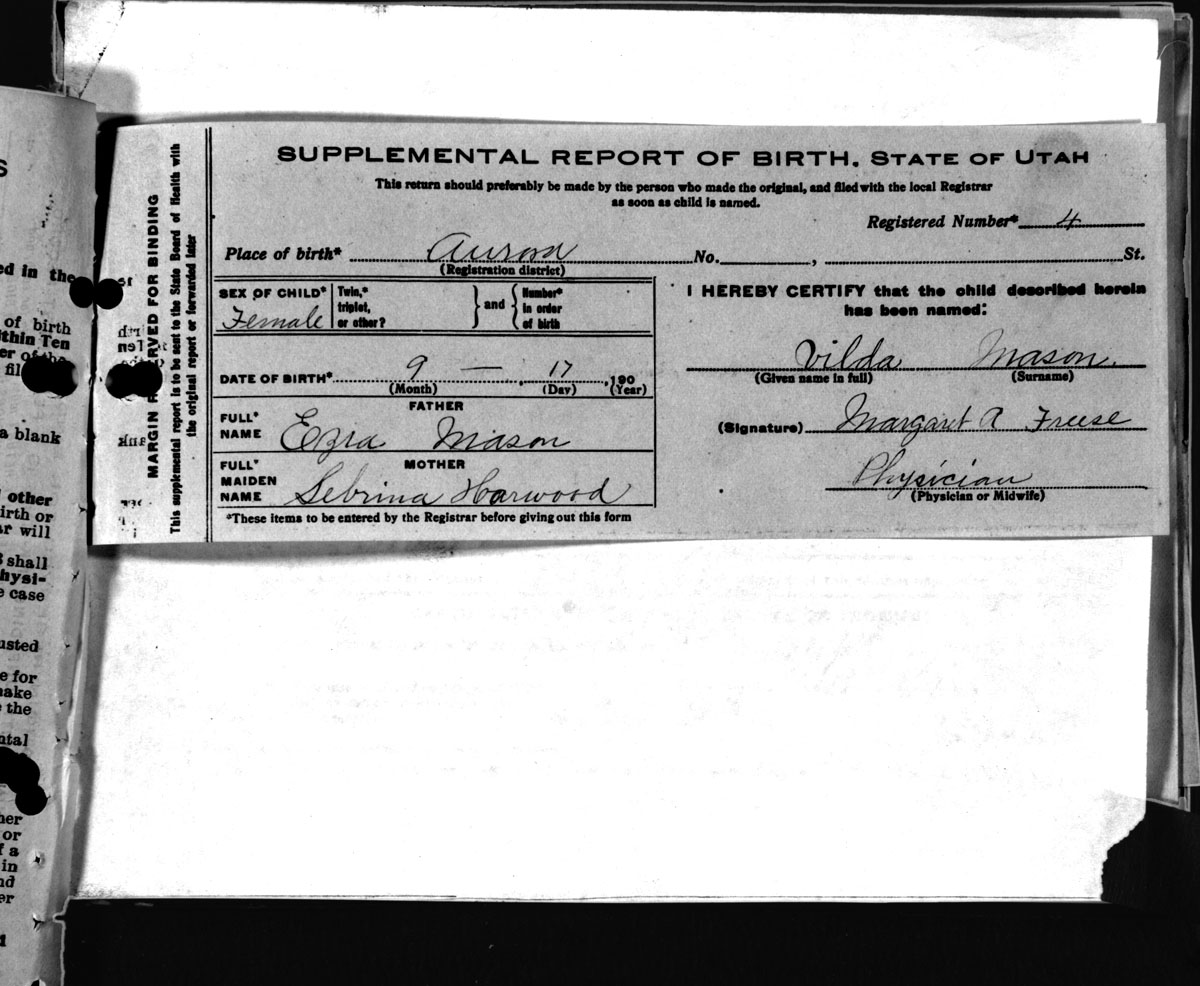 SUPPLEMENTAL REPORT OF BIRTH, STATE OF UTAH
This return should preferably be made by the person who made the original, and filed with the local Registrar
as soon as child is named.
Registered Number* 4
Place of birth* Aurora No. , St.
(Registration district)
SEX OF CHILD* Female
Twin,* triplet, or other?
and
Number* in order of birth
DATE OF BIRTH* 9 — 17 , 190
(Month) (Day) (Year)
FATHER
FULL* NAME Ezra Mason
MOTHER
FULL* MAIDEN NAME Sebrina Harwood
*These items to be entered by the Registrar before giving out this form
I HEREBY CERTIFY that the child described herein
has been named:
Vilda Mason.
(Given name in full) (Surname)
(Signature) Margaret A Freese
Physician
(Physician or Midwife)
MARGIN RESERVED FOR BINDING
This supplemental report is to be sent to the State Board of Health with
the original report or forwarded later
S
ed in the
of birth
ithin Ten
er of the
fil
a blank
other
irth or
ar will
shall
hysi-
e case
usted
e for
make
e the
ntal
her
or
f a
in
nd
er